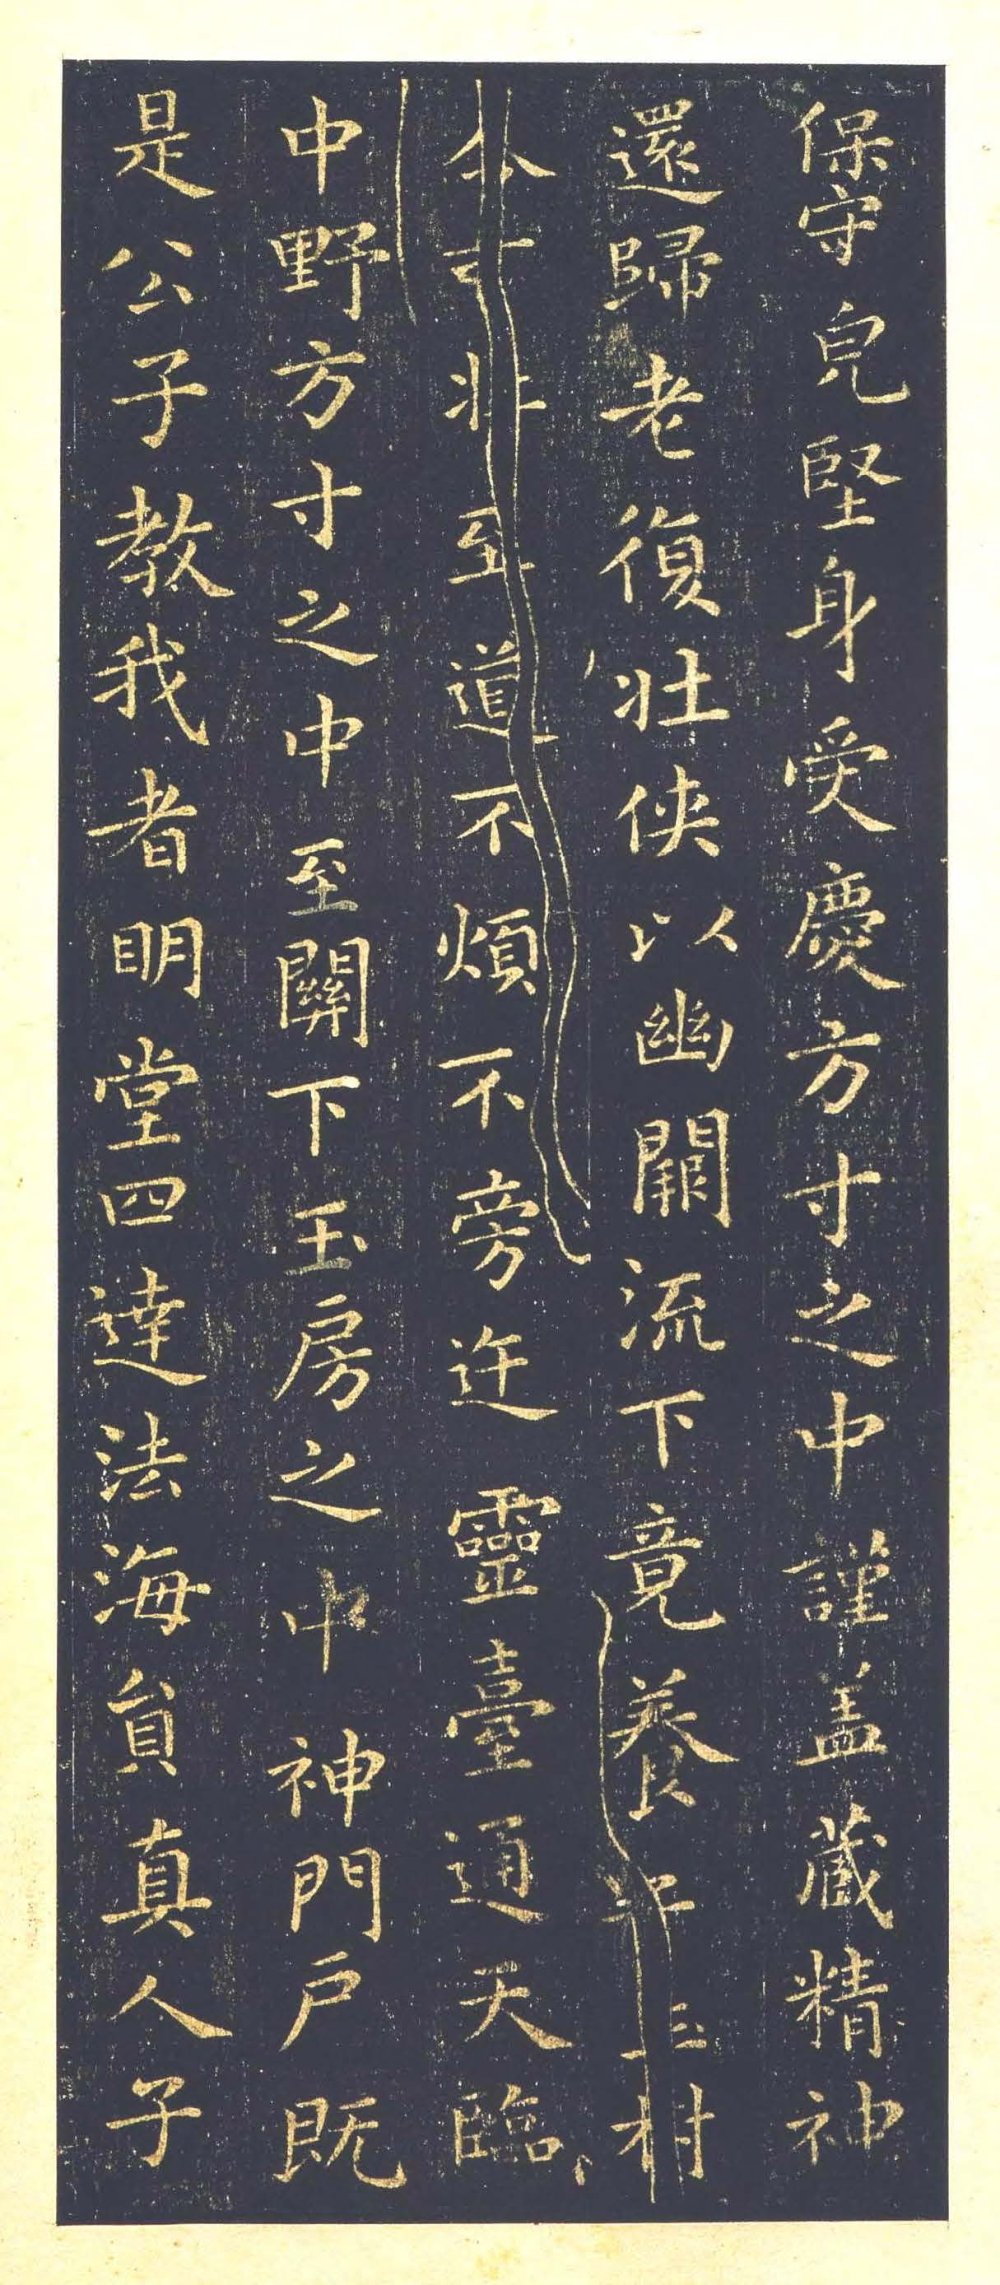 保守皃堅身受慶方寸之中謹盖藏精神
還歸老復壯俠以幽闕流下竟養子玉樹
令可杖至道不煩不旁迕靈臺通天臨
中野方寸之中至關下玉房之中神門戶既
是公子教我者明堂四達法海員真人子